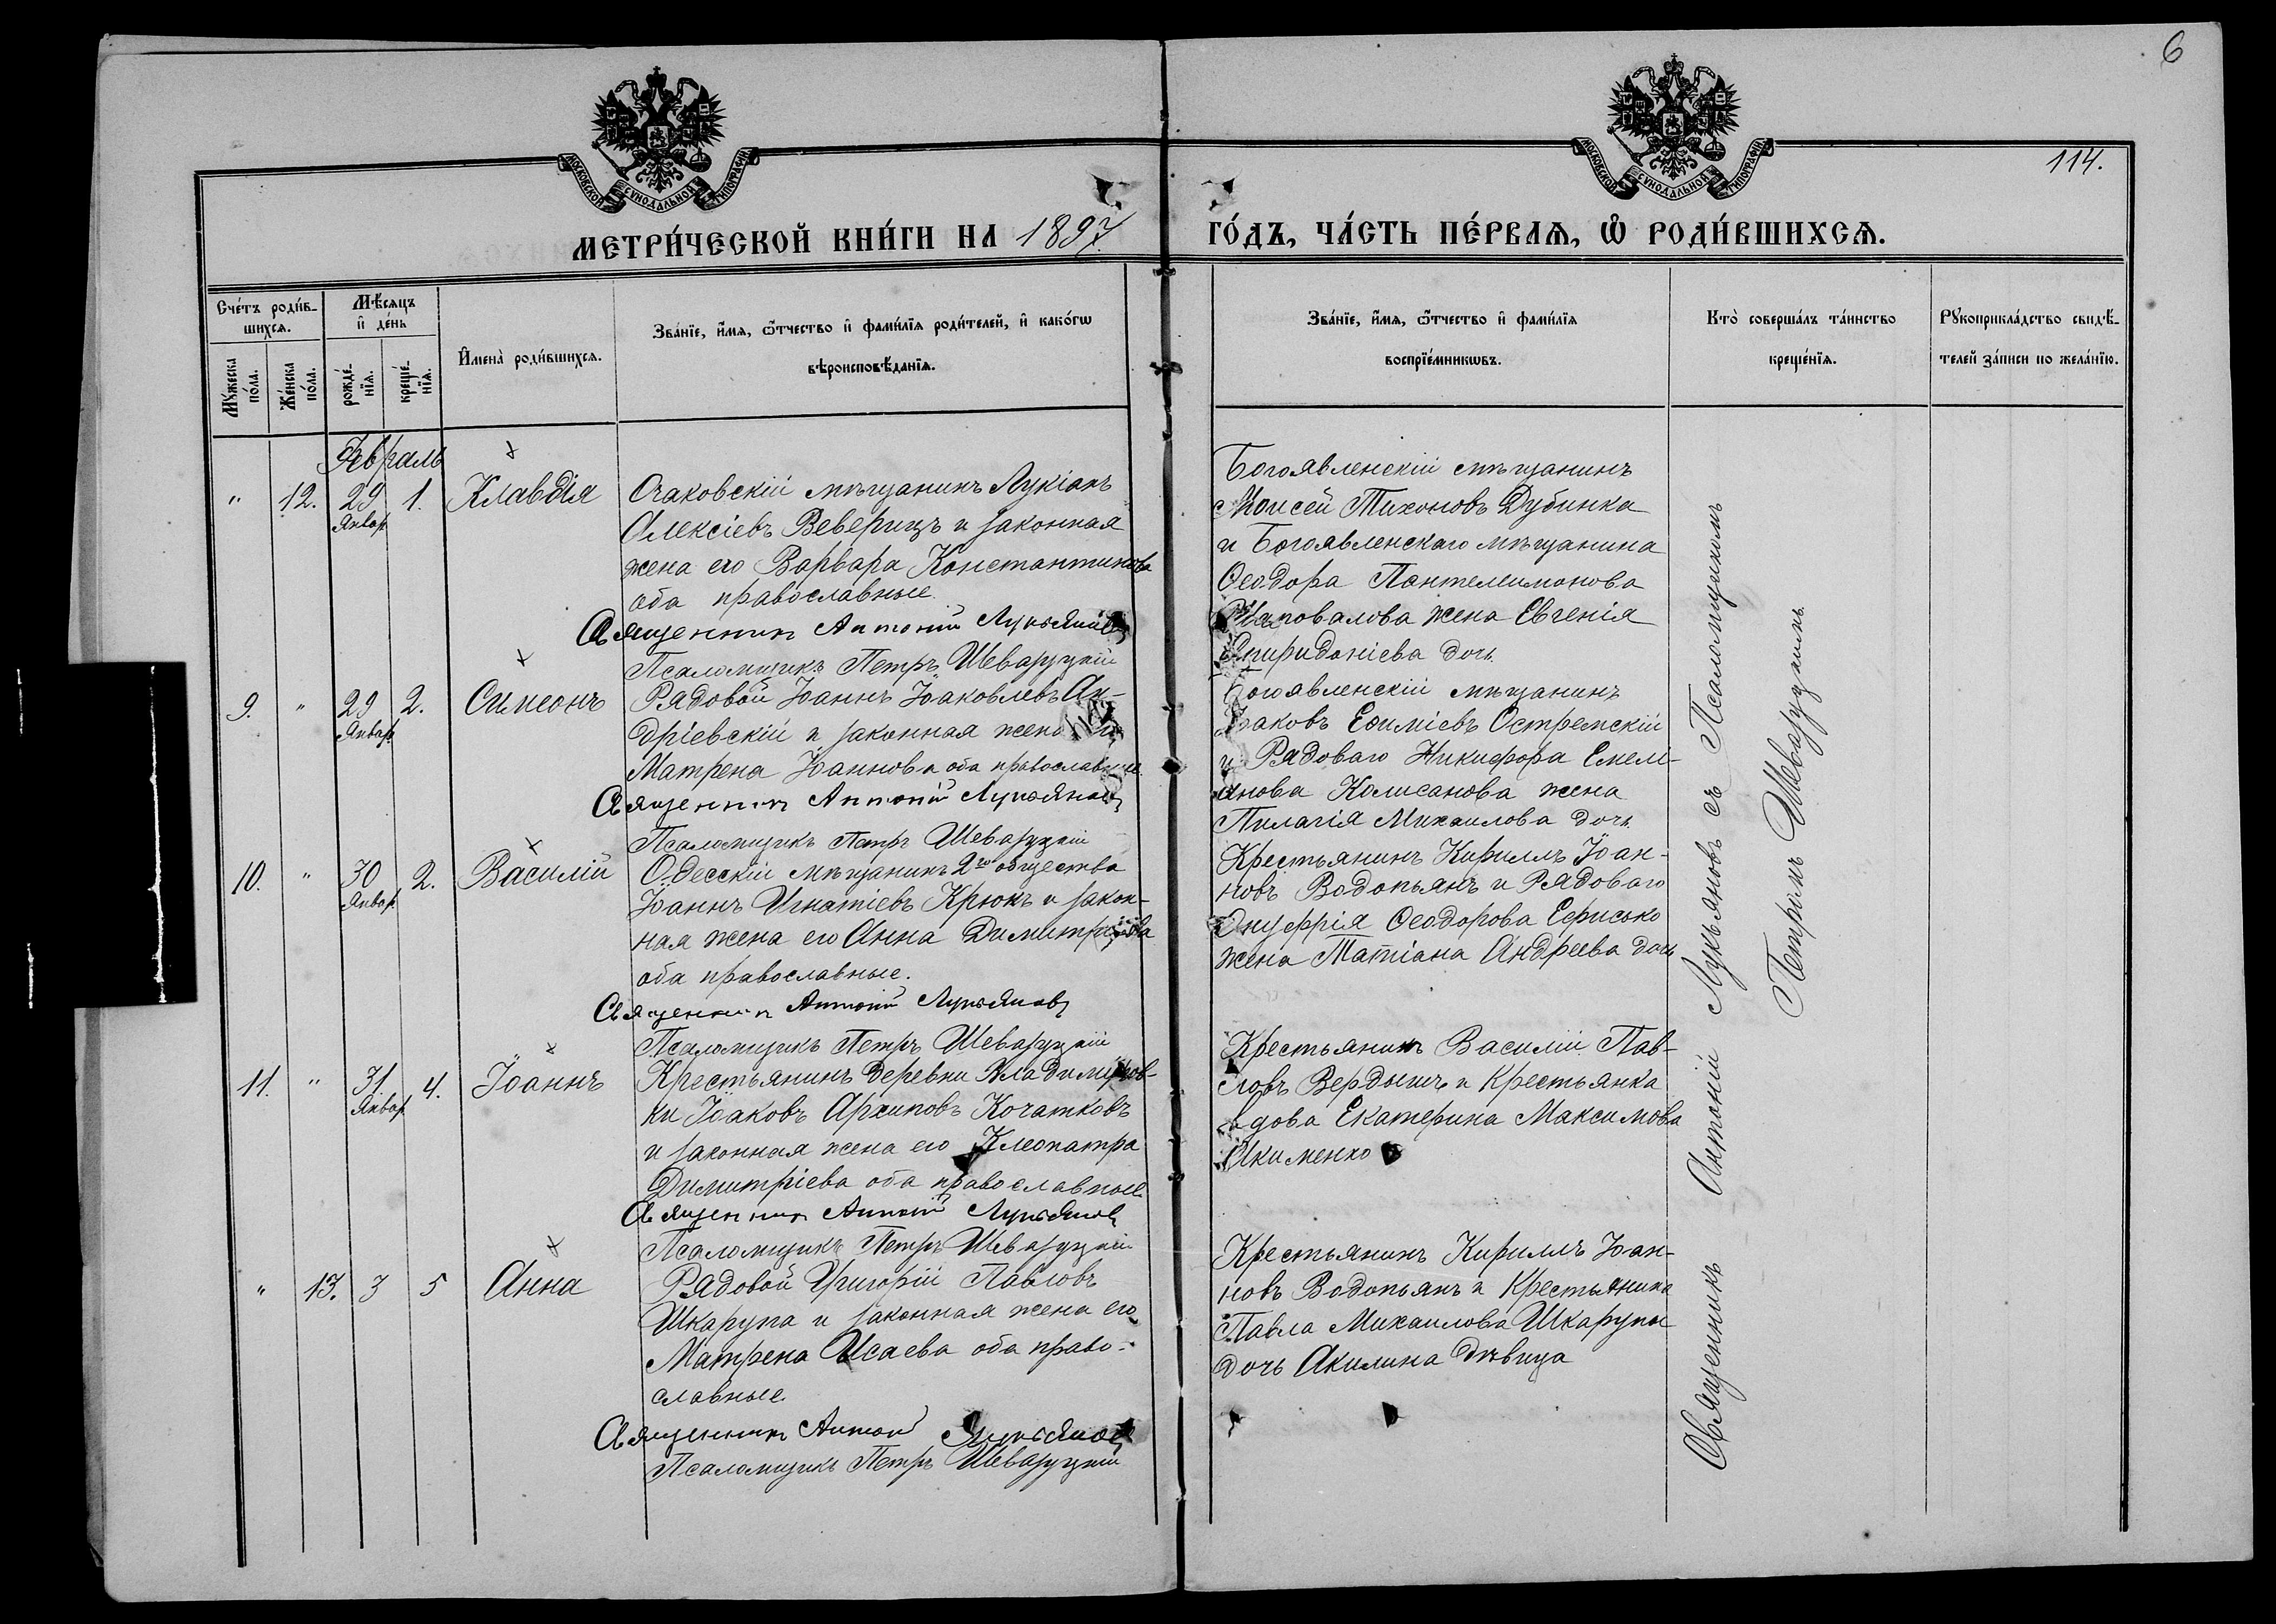 6
114.
МОСКОВСКОЙ СѴНОДАЛЬНОЙ ТИПОГРАФІИ
МОСКОВСКОЙ СѴНОДАЛЬНОЙ ТИПОГРАФІИ
МЕТРИ́ЧЕСКОЙ КНИ́ГИ НА 1897
ГО́ДЪ, ЧА́СТЬ ПЕ́РВАѦ, Ѡ РОДИ́ВШИХСѦ.
Сче́тъ роди́в-
шихсѧ.
Мꙋ́жеска
по́ла.
Же́нска
по́ла.
Мѣ́сѧцъ
и де́нь
рожде́-
нїѧ.
креще́-
нїѧ.
Имена̀ роди́вшихсѧ.
Зва́нїе, и́мѧ, ѻ҆́тчество и фами́лїѧ роди́телей, и како́гѡ
вѣроисповѣ́данїѧ.
Зва́нїе, и́мѧ, ѻ҆́тчество и фами́лїѧ
воспрїе́мникѡвъ.
Кто̀ соверша́лъ та́инство
креще́нїѧ.
Рꙋкоприкла́дство свидѣ́-
телей за́писи по жела́нїю.
Февраль
" 12. 29 Январ 1. Клавдія
Очаковскій мѣщанинъ Лукіанъ
Алексіевъ Веверицъ и законная
жена его Варвара Константинова
оба православные.
Священник Антоній Лукьянов
Псаломщикъ Петръ Шеваруцкій
Богоявленскій мѣщанинъ
Моисей Тихоновъ Дубинка
и Богоявленскаго мѣщанина
Ѳеодора Пантелеимонова
Шаповалова жена Евгенія
Спиридоніева дочь.
9. " 29 Январ 2. Симеонъ
Рядовой Іоаннъ Іаковлевъ Ан-
дріевскій и законная жена его
Матрена Іоаннова оба православные
Священник Антоній Лукьянов
Псаломщикъ Петръ Шеваруцкій
Богоявленскій мѣщанинъ
Іаковъ Еѳиміевъ Остремскій
и Рядоваго Никифора Емель-
янова Колисанова жена
Пилагія Михаилова дочь
10. " 30 Январ 2. Василій
Одесскій мѣщанинъ 2го общества
Іоаннъ Игнатіевъ Крюкъ и закон-
ная жена его Анна Димитріева
оба православные.
Священник Антоній Лукьянов
Псаломщикъ Петръ Шеваруцкій
Крестьянинъ Кириллъ Іоан-
новъ Водопьянъ и Рядоваго
Онуфрія Ѳеодорова Ефисько
жена Татіана Андреева дочь
11. " 31 Январ 4. Іоаннъ
Крестьянинъ деревни Владиміров-
ки Іаковъ Архиповъ Кочатковъ
и законная жена его Клеопатра
Димитріева оба православные.
Священник Антоній Лукьянов
Псаломщикъ Петръ Шеваруцкій
Крестьянинъ Василій Пав-
ловъ Вердышъ и Крестьянка
вдова Екатерина Максимова
Акименко
" 13. 3 5 Анна
Рядовой Григорій Павловъ
Шкарупа и законная жена его
Матрена Исаева оба право-
славные.
Священник Антоній Лукьянов
Псаломщикъ Петръ Шеваруцкій
Крестьянинъ Кириллъ Іоан-
новъ Водопьянъ и Крестьянина
Павла Михаилова Шкарупы
дочь Акилина дѣвица
Священникъ Антоній Лукьяновъ съ Псаломщикомъ
Петромъ Шеваруцкимъ.